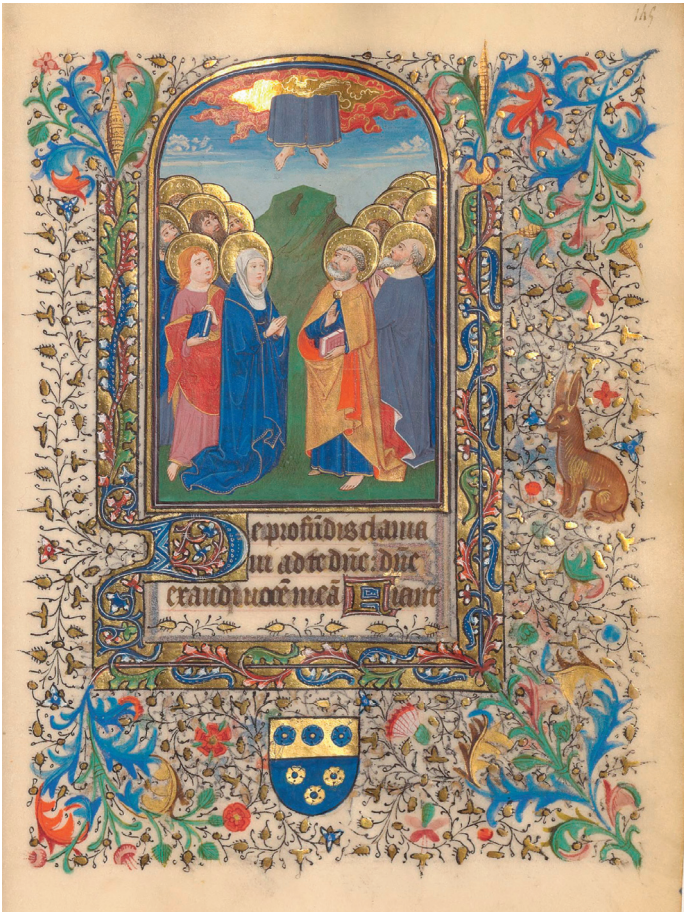 De profũdis clama
ui ad te dñe: dñe
exaudi uocẽ meã Fiant